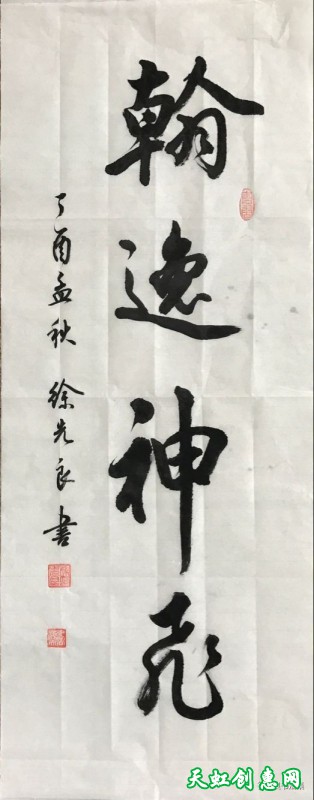 翰逸神飛
丁酉孟秋 徐先良 書
天虹创惠网